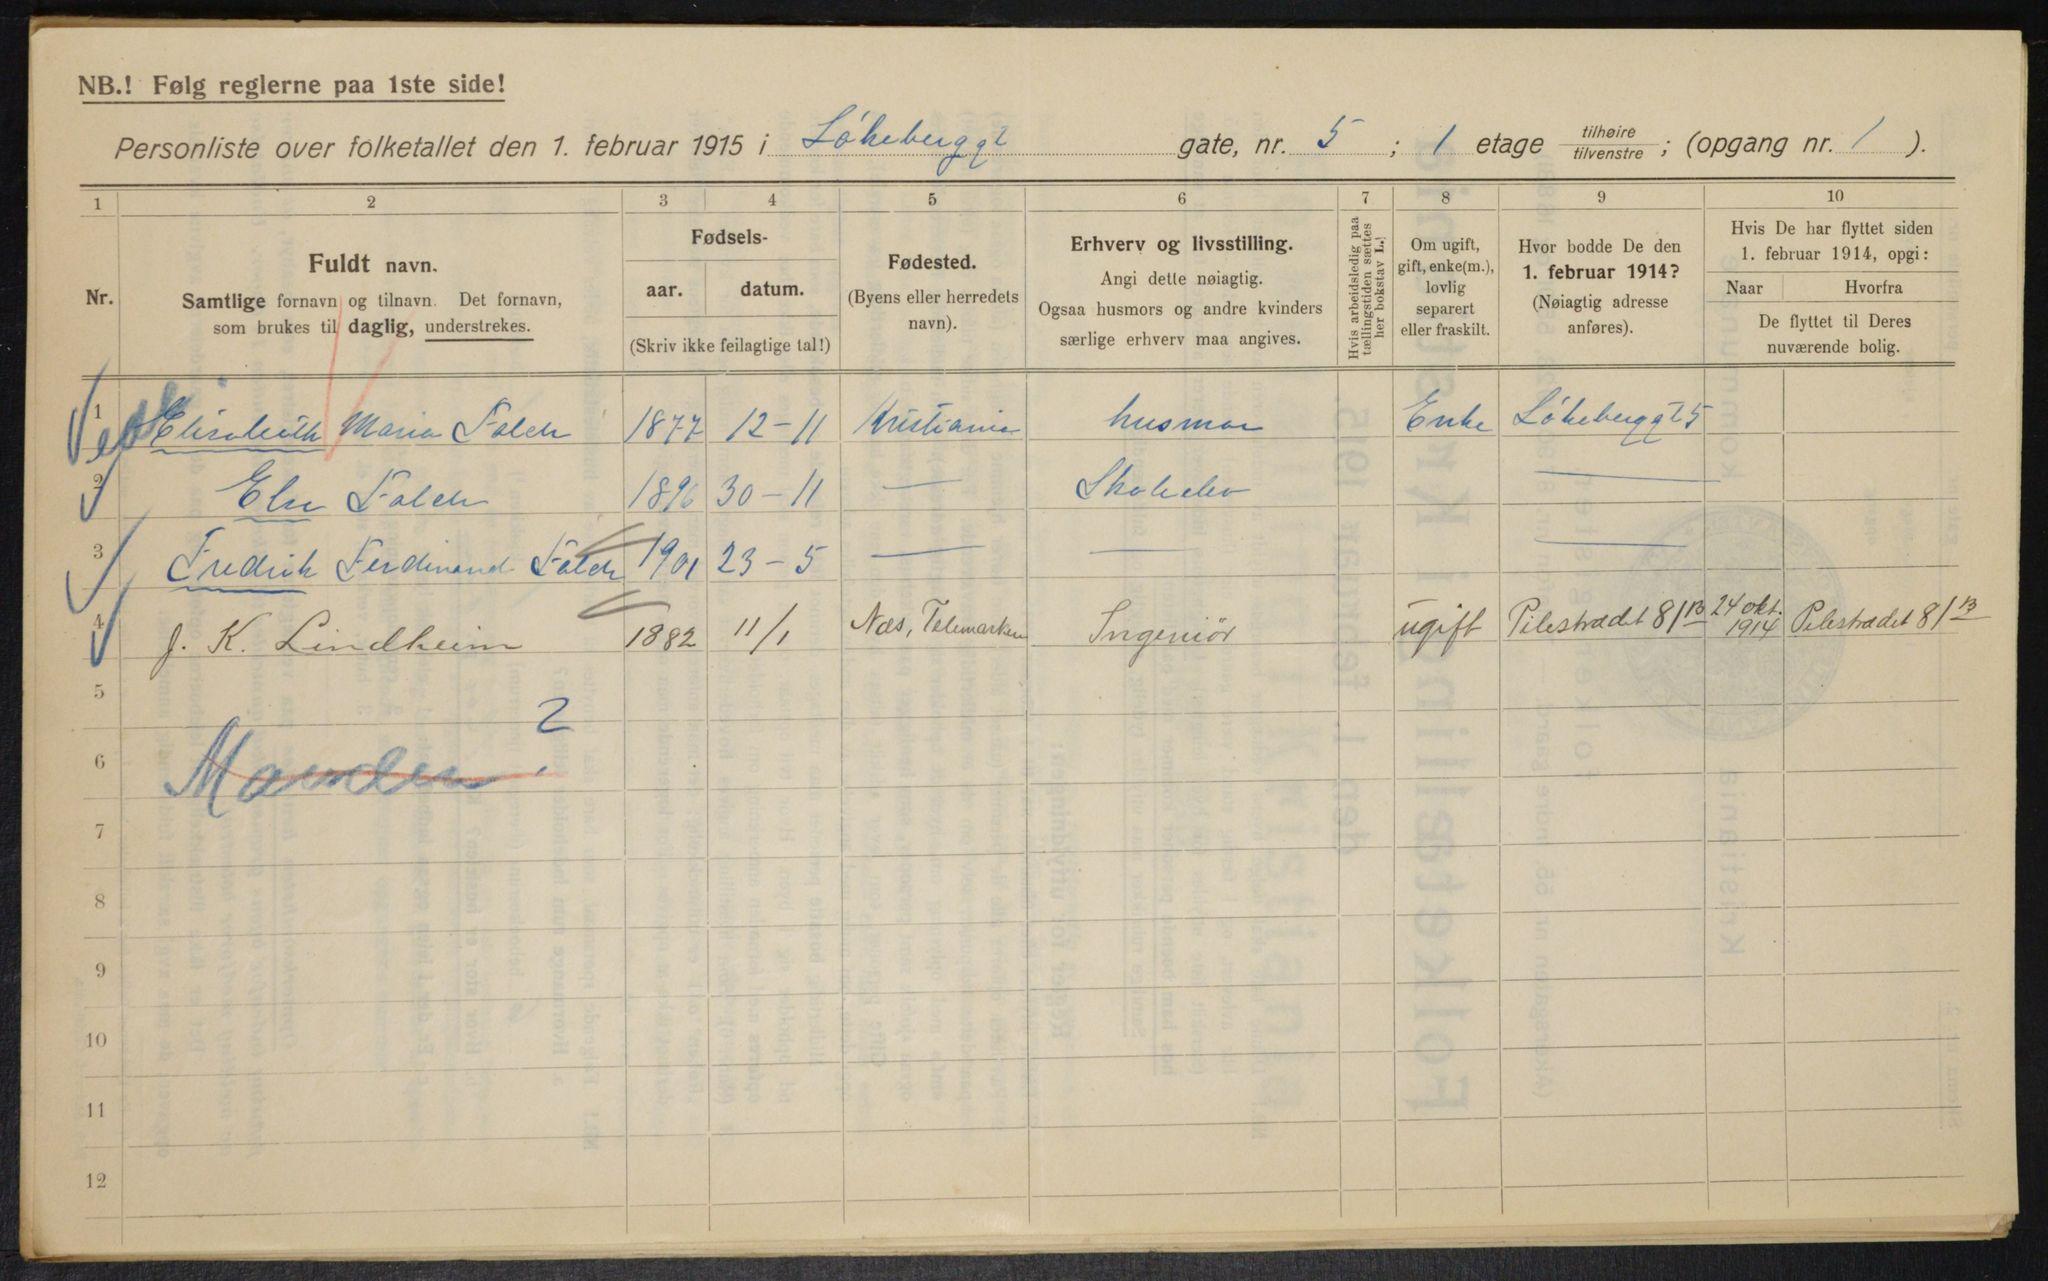 NB.! Følg reglerne paa 1ste side!
Personliste over folketallet den 1. februar 1915 i Løkeberggt gate, nr. 5 ; 1 etage tilhøire tilvenstre ; (opgang nr. 1 ).
1 2 3 4 5 6 7 8 9 10
Nr.
Fuldt navn.
Samtlige fornavn og tilnavn. Det fornavn,
som brukes til daglig, understrekes.
Fødsels-
aar. datum.
(Skriv ikke feilagtige tal!)
Fødested.
(Byens eller herredets
navn).
Erhverv og livsstilling.
Angi dette nøiagtig.
Ogsaa husmors og andre kvinders
særlige erhverv maa angives.
Hvis arbeidsledig paa
tællingstiden sættes
her bokstav L.!
Om ugift,
gift, enke(m.),
lovlig
separert
eller fraskilt.
Hvor bodde De den
1. februar 1914?
(Nøiagtig adresse
anføres).
Hvis De har flyttet siden
1. februar 1914, opgi:
Naar Hvorfra
De flyttet til Deres
nuværende bolig.
1 Elisabeth Maria Falch 1877 12-11 Kristiania husmor Enke Løkeberggt 5
2 Else Falch 1896 30-11 — Skoleelev —
3 Fredrik Ferdinand Falch 1901 23-5 — — —
4 J. K. Lindheim 1882 11/1 Næs, Telemarken Ingeniör ugift Pilestrædet 81B 24 okt. 1914 Pilestrædet 81B
5
2
6
7
8
9
10
11
12